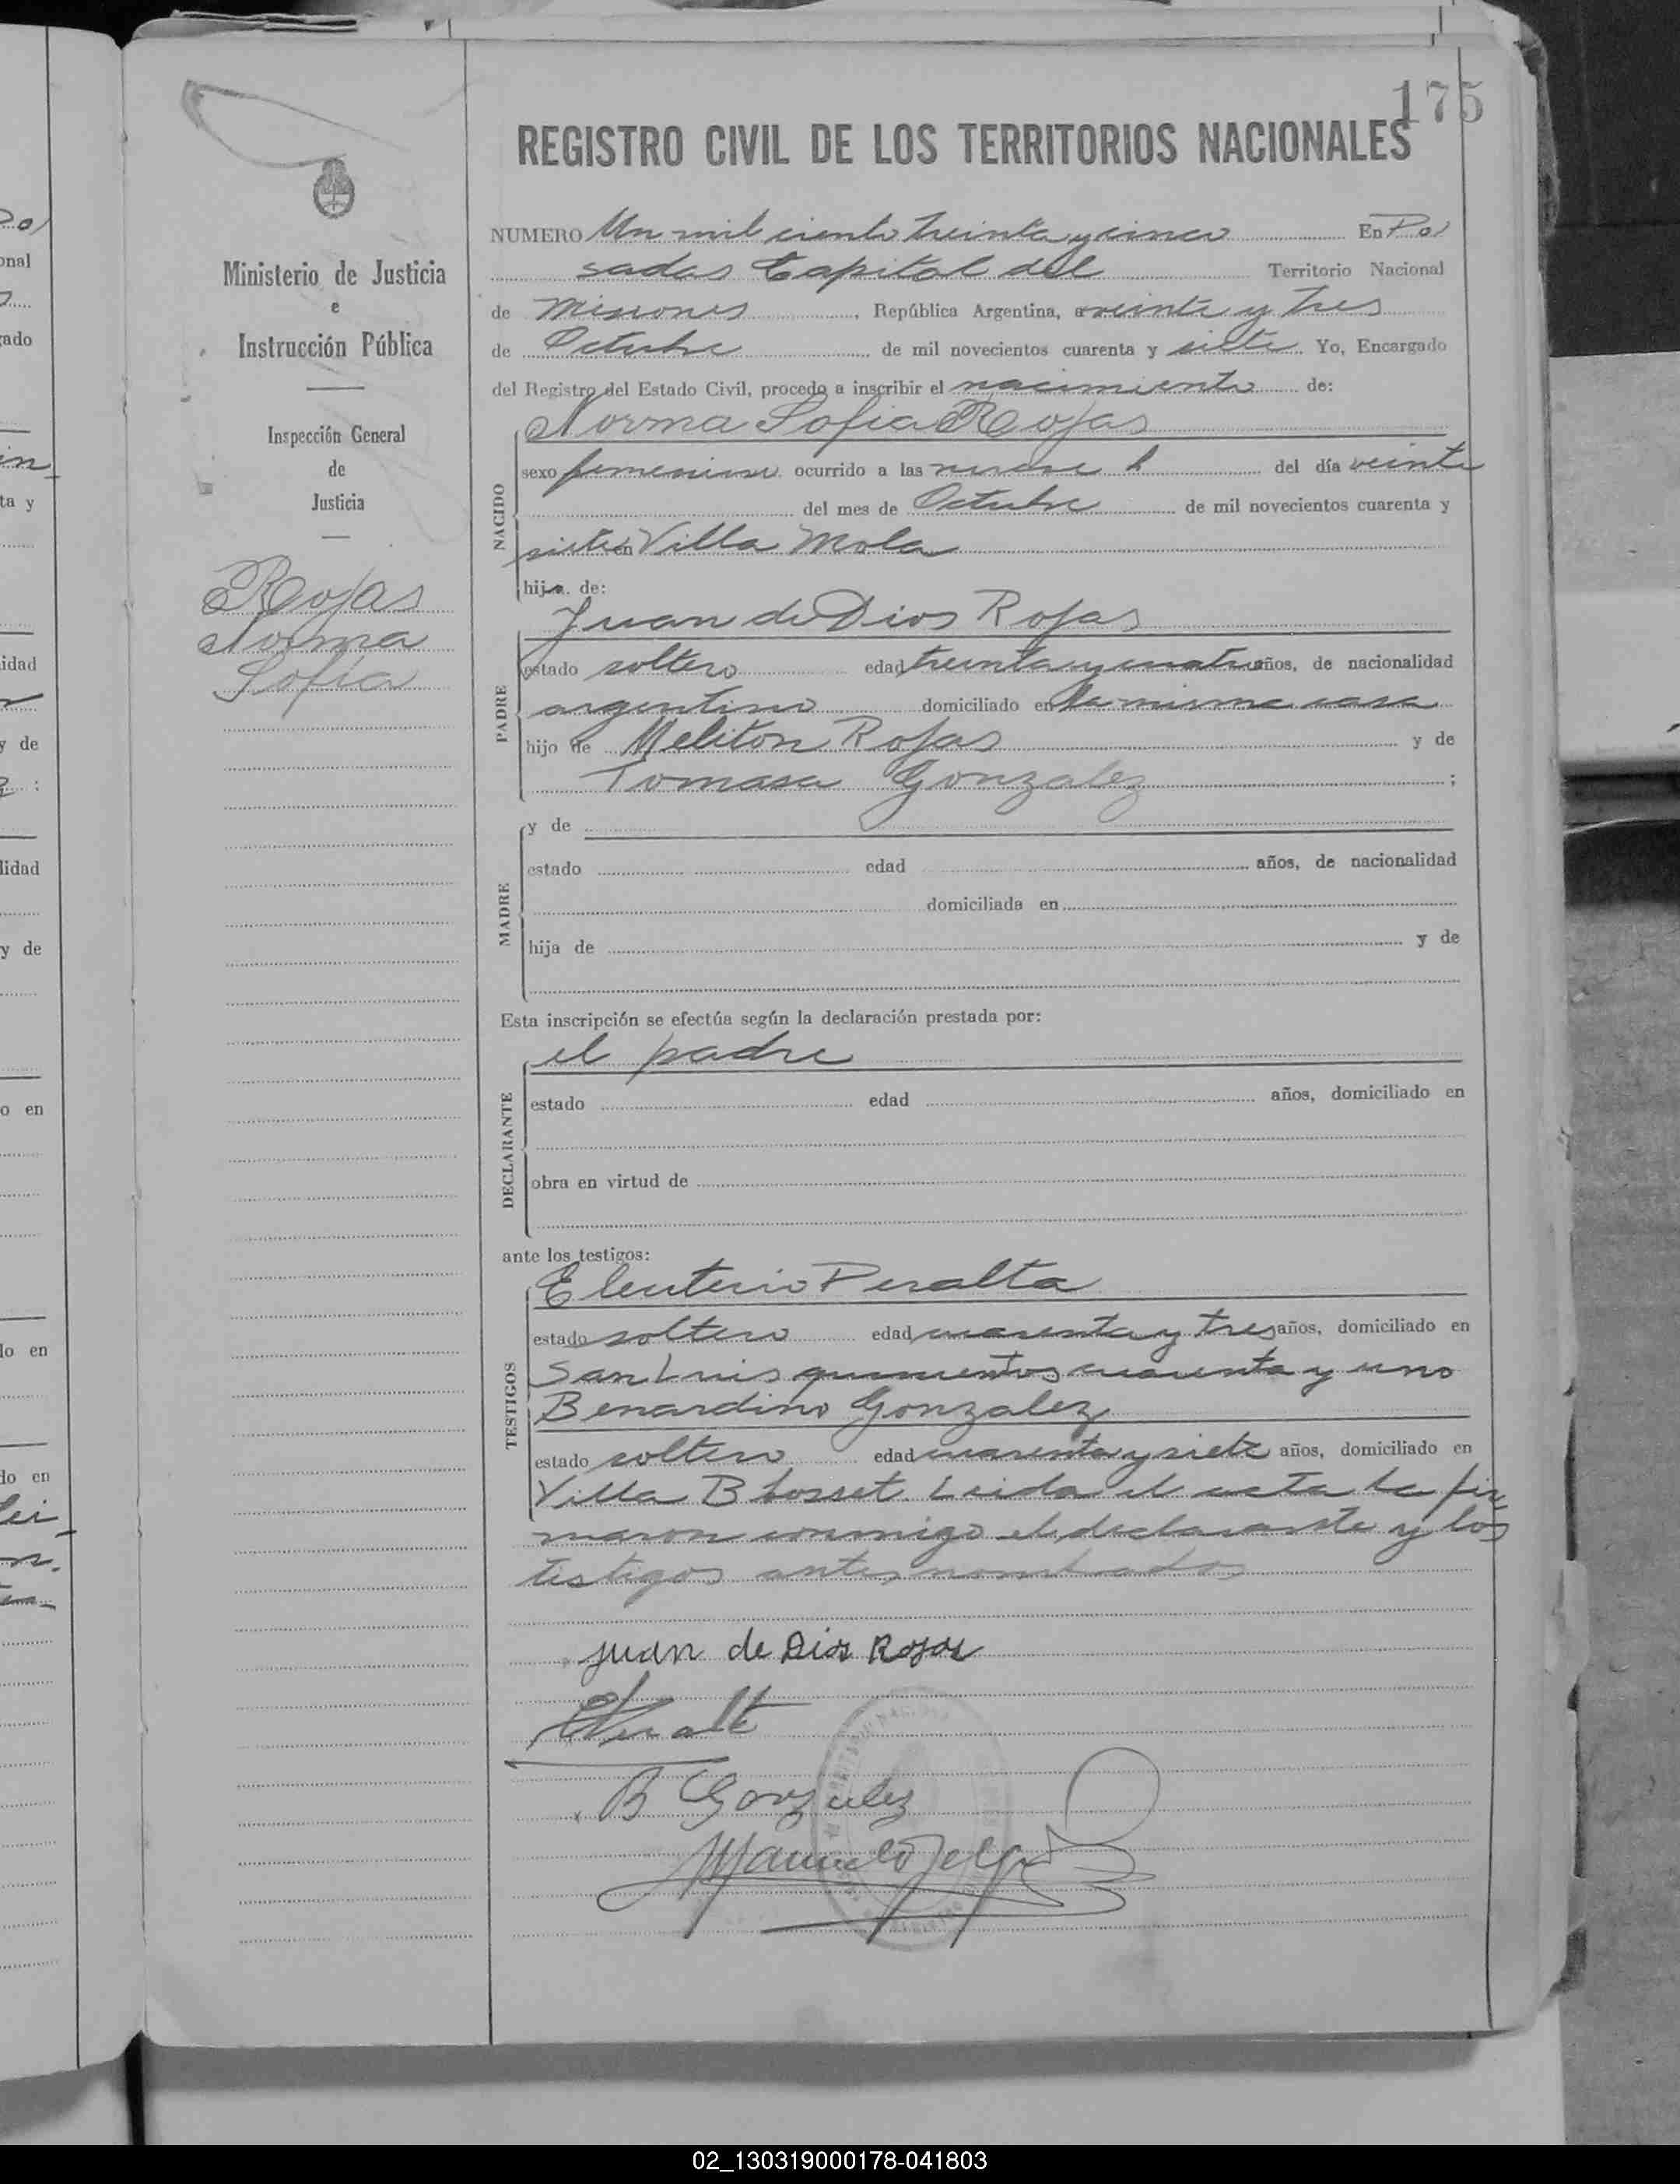 175
REGISTRO CIVIL DE LOS TERRITORIOS NACIONALES
Ministerio de Justicia
e
Instrucción Pública
Inspección General
de
Justicia
Rojas
Norma
Sofia
NUMERO Un mil ciento treinta y cinco En Po
sadas Capital del Territorio Nacional
de Misiones, República Argentina, a veinte y tres
de Octubre de mil novecientos cuarenta y siete Yo, Encargado
del Registro del Estado Civil, procedo a inscribir el nacimiento de:
NACIDO
Norma Sofia Rojas
sexo femenino ocurrido a las nueve h del día veinte
del mes de Octubre de mil novecientos cuarenta y
siete en Villa Mola
hija de:
PADRE
Juan de Dios Rojas
estado soltero edad treinta y cuatro años, de nacionalidad
argentino domiciliado en la misma casa
hijo de Meliton Rojas y de
Tomasa Gonzalez ;
MADRE
y de
estado edad años, de nacionalidad
domiciliada en
hija de y de
Esta inscripción se efectúa según la declaración prestada por:
DECLARANTE
el padre
estado edad años, domiciliado en
obra en virtud de
ante los testigos:
TESTIGOS
Eleuterio Peralta
estado soltero edad cuarenta y tres años, domiciliado en
San Luis quinientos cuarenta y uno
Benardino Gonzalez
estado soltero edad cuarenta y siete años, domiciliado en
Villa Blosset. Leida el acta la fir
maron conmigo el declarante y los
testigos antes nombrados
juan de Dios Rojas
EPeralta
B Gonzalez
02_130319000178-041803